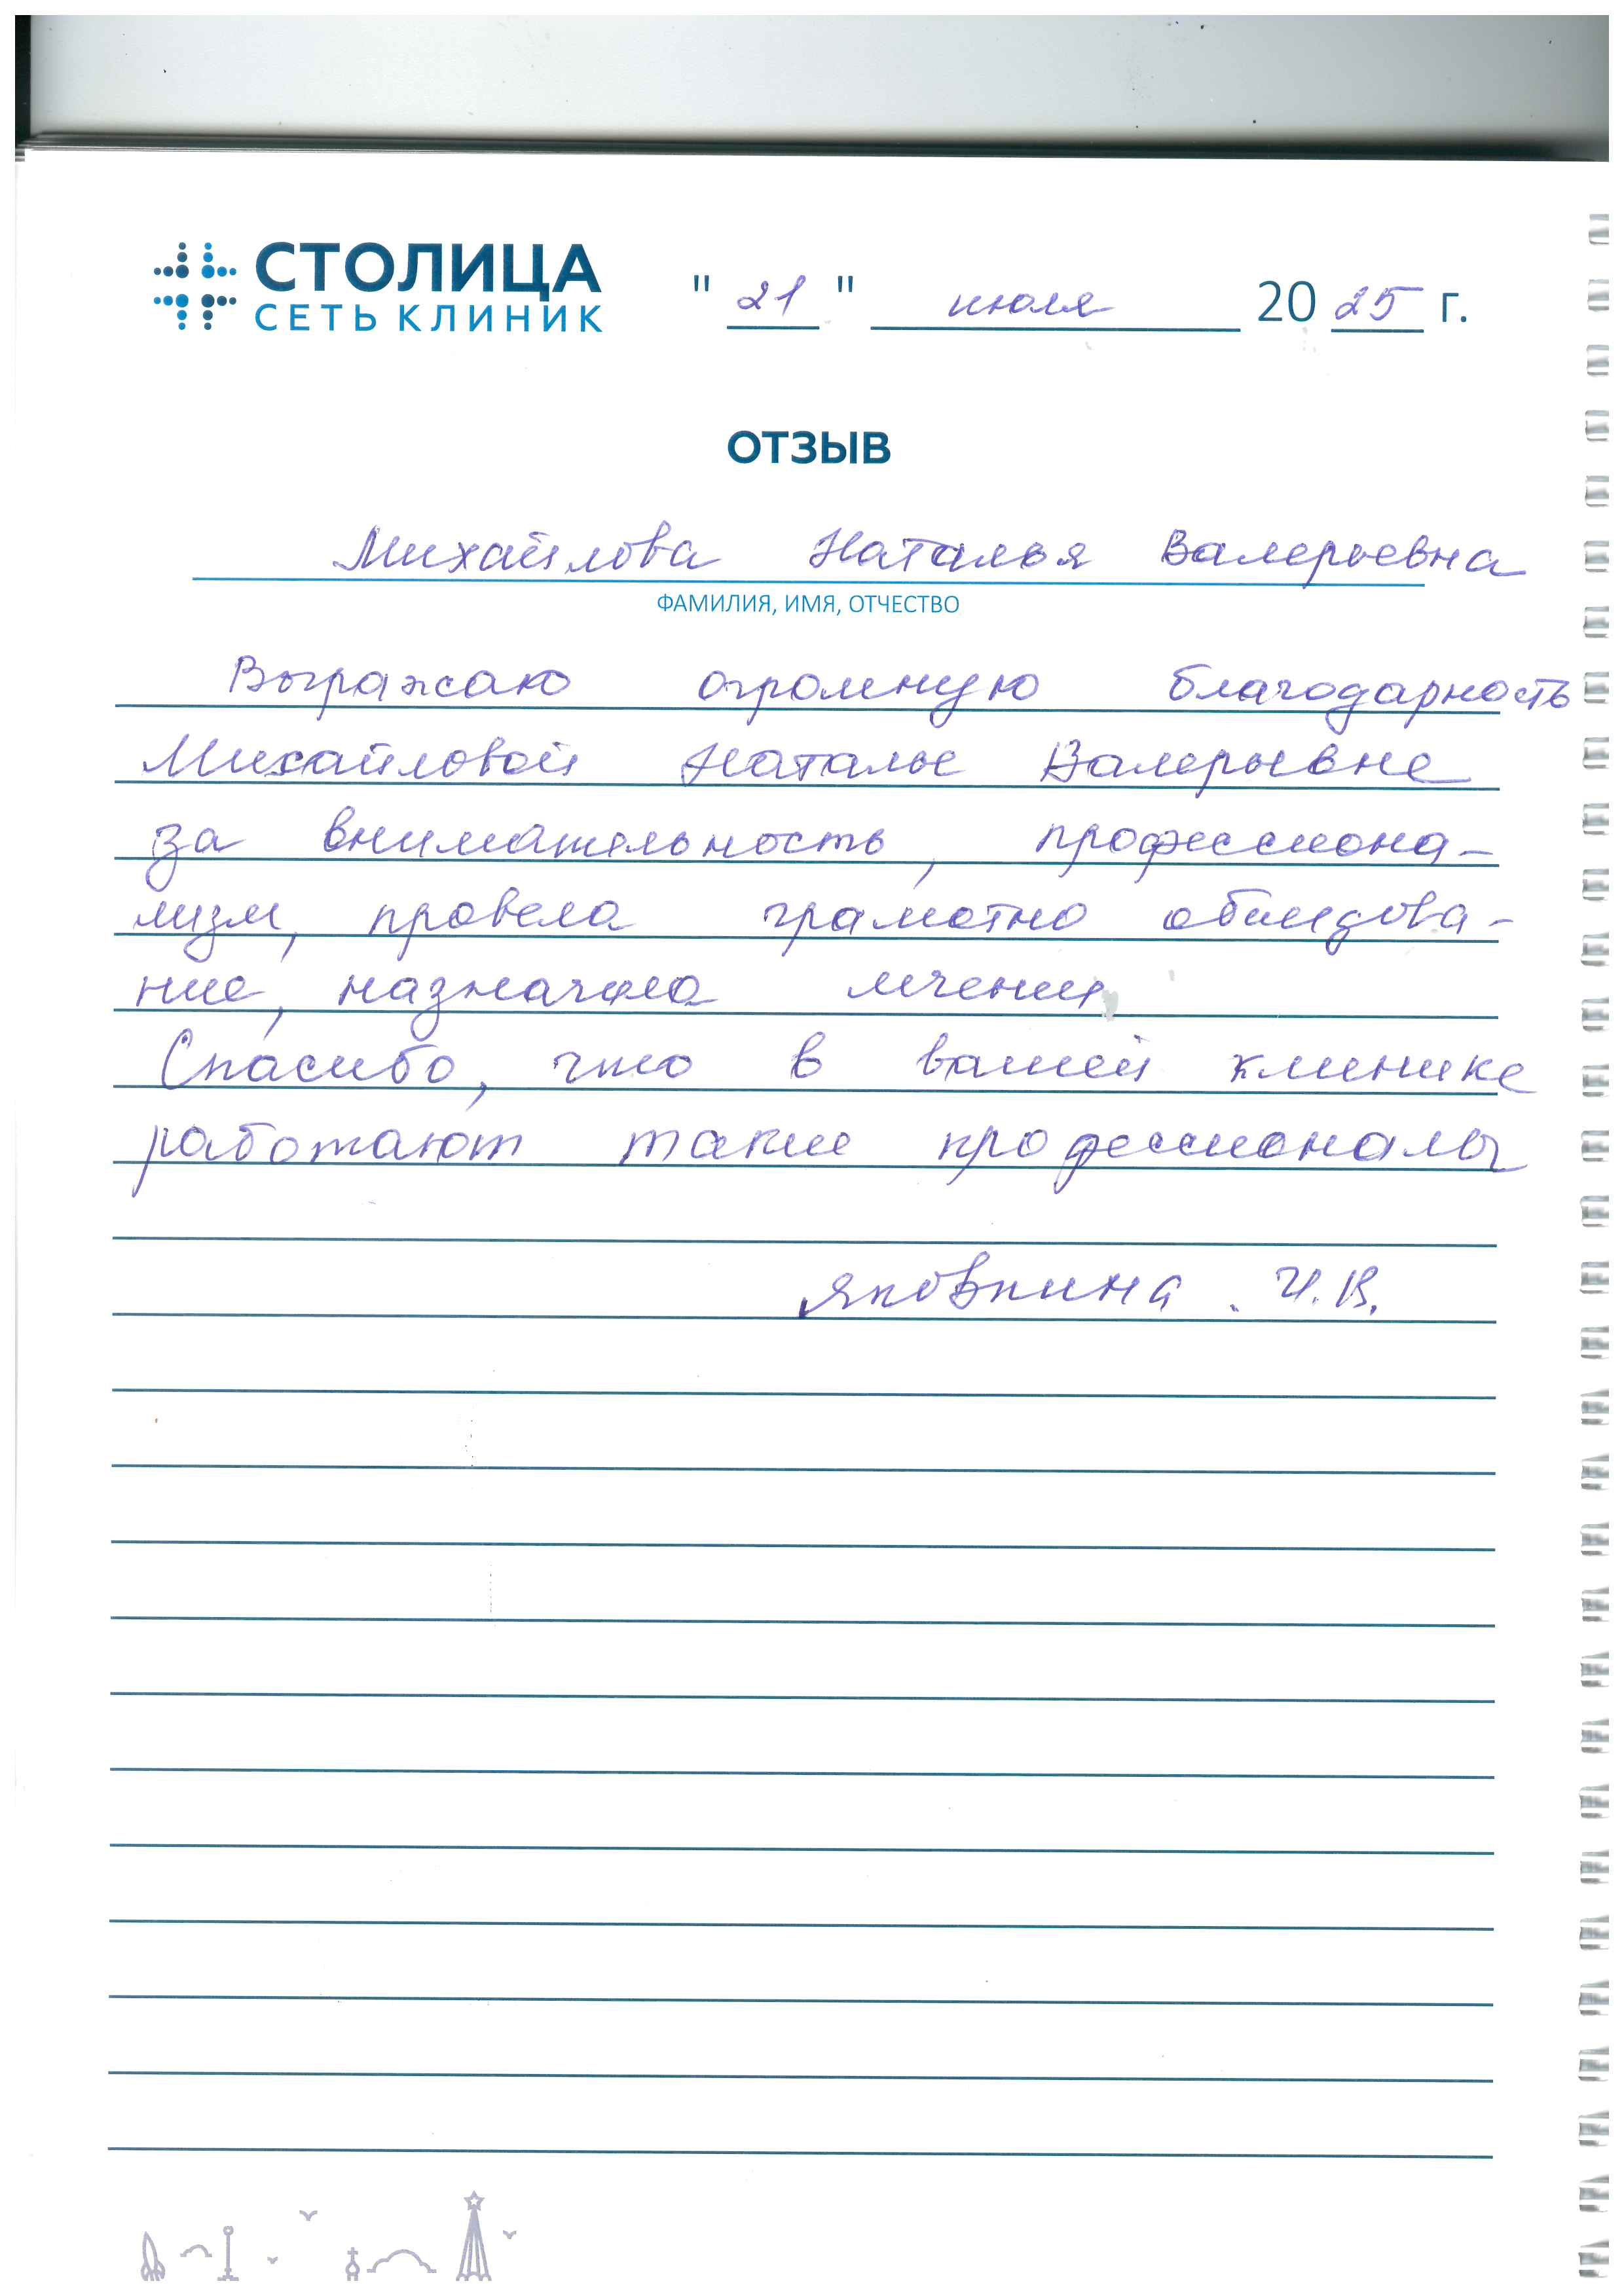 СТОЛИЦА
СЕТЬ КЛИНИК
" 21 " июля 2025 г.
ОТЗЫВ
Михайлова Наталья Валерьевна
ФАМИЛИЯ, ИМЯ, ОТЧЕСТВО
Выражаю огромную благодарность
Михайловой Наталье Валерьевне
за внимательность, профессиона-
лизм, провела грамотно
ние, назначила лечение
Спасибо, что в вашей клинике
работают такие профессионалы
Яковкина